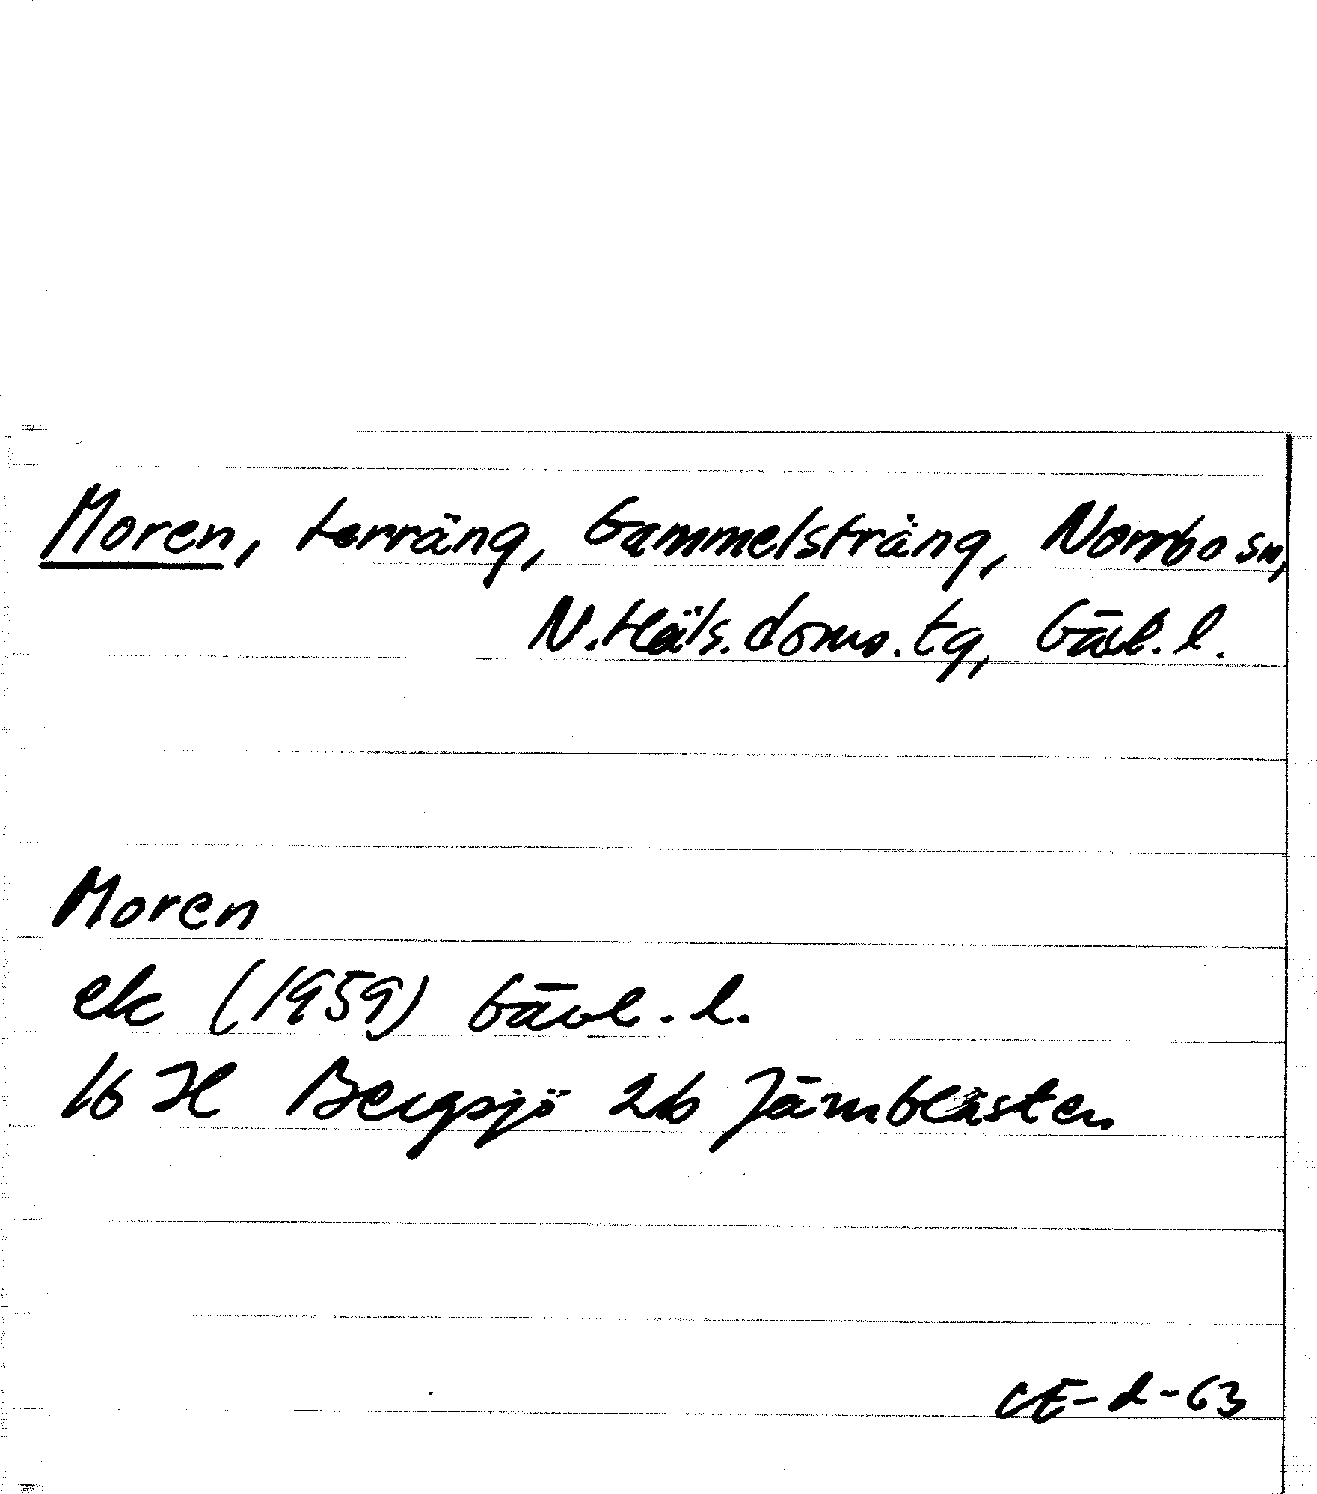 Moren, terräng, Gammelsträng, Norrbo sn,
N. Häls. doms. tg, Gävl. l.
Moren
ek (1959) Gävl. l.
16 H Bergsjö 2b Järnblästen
CE-d-63